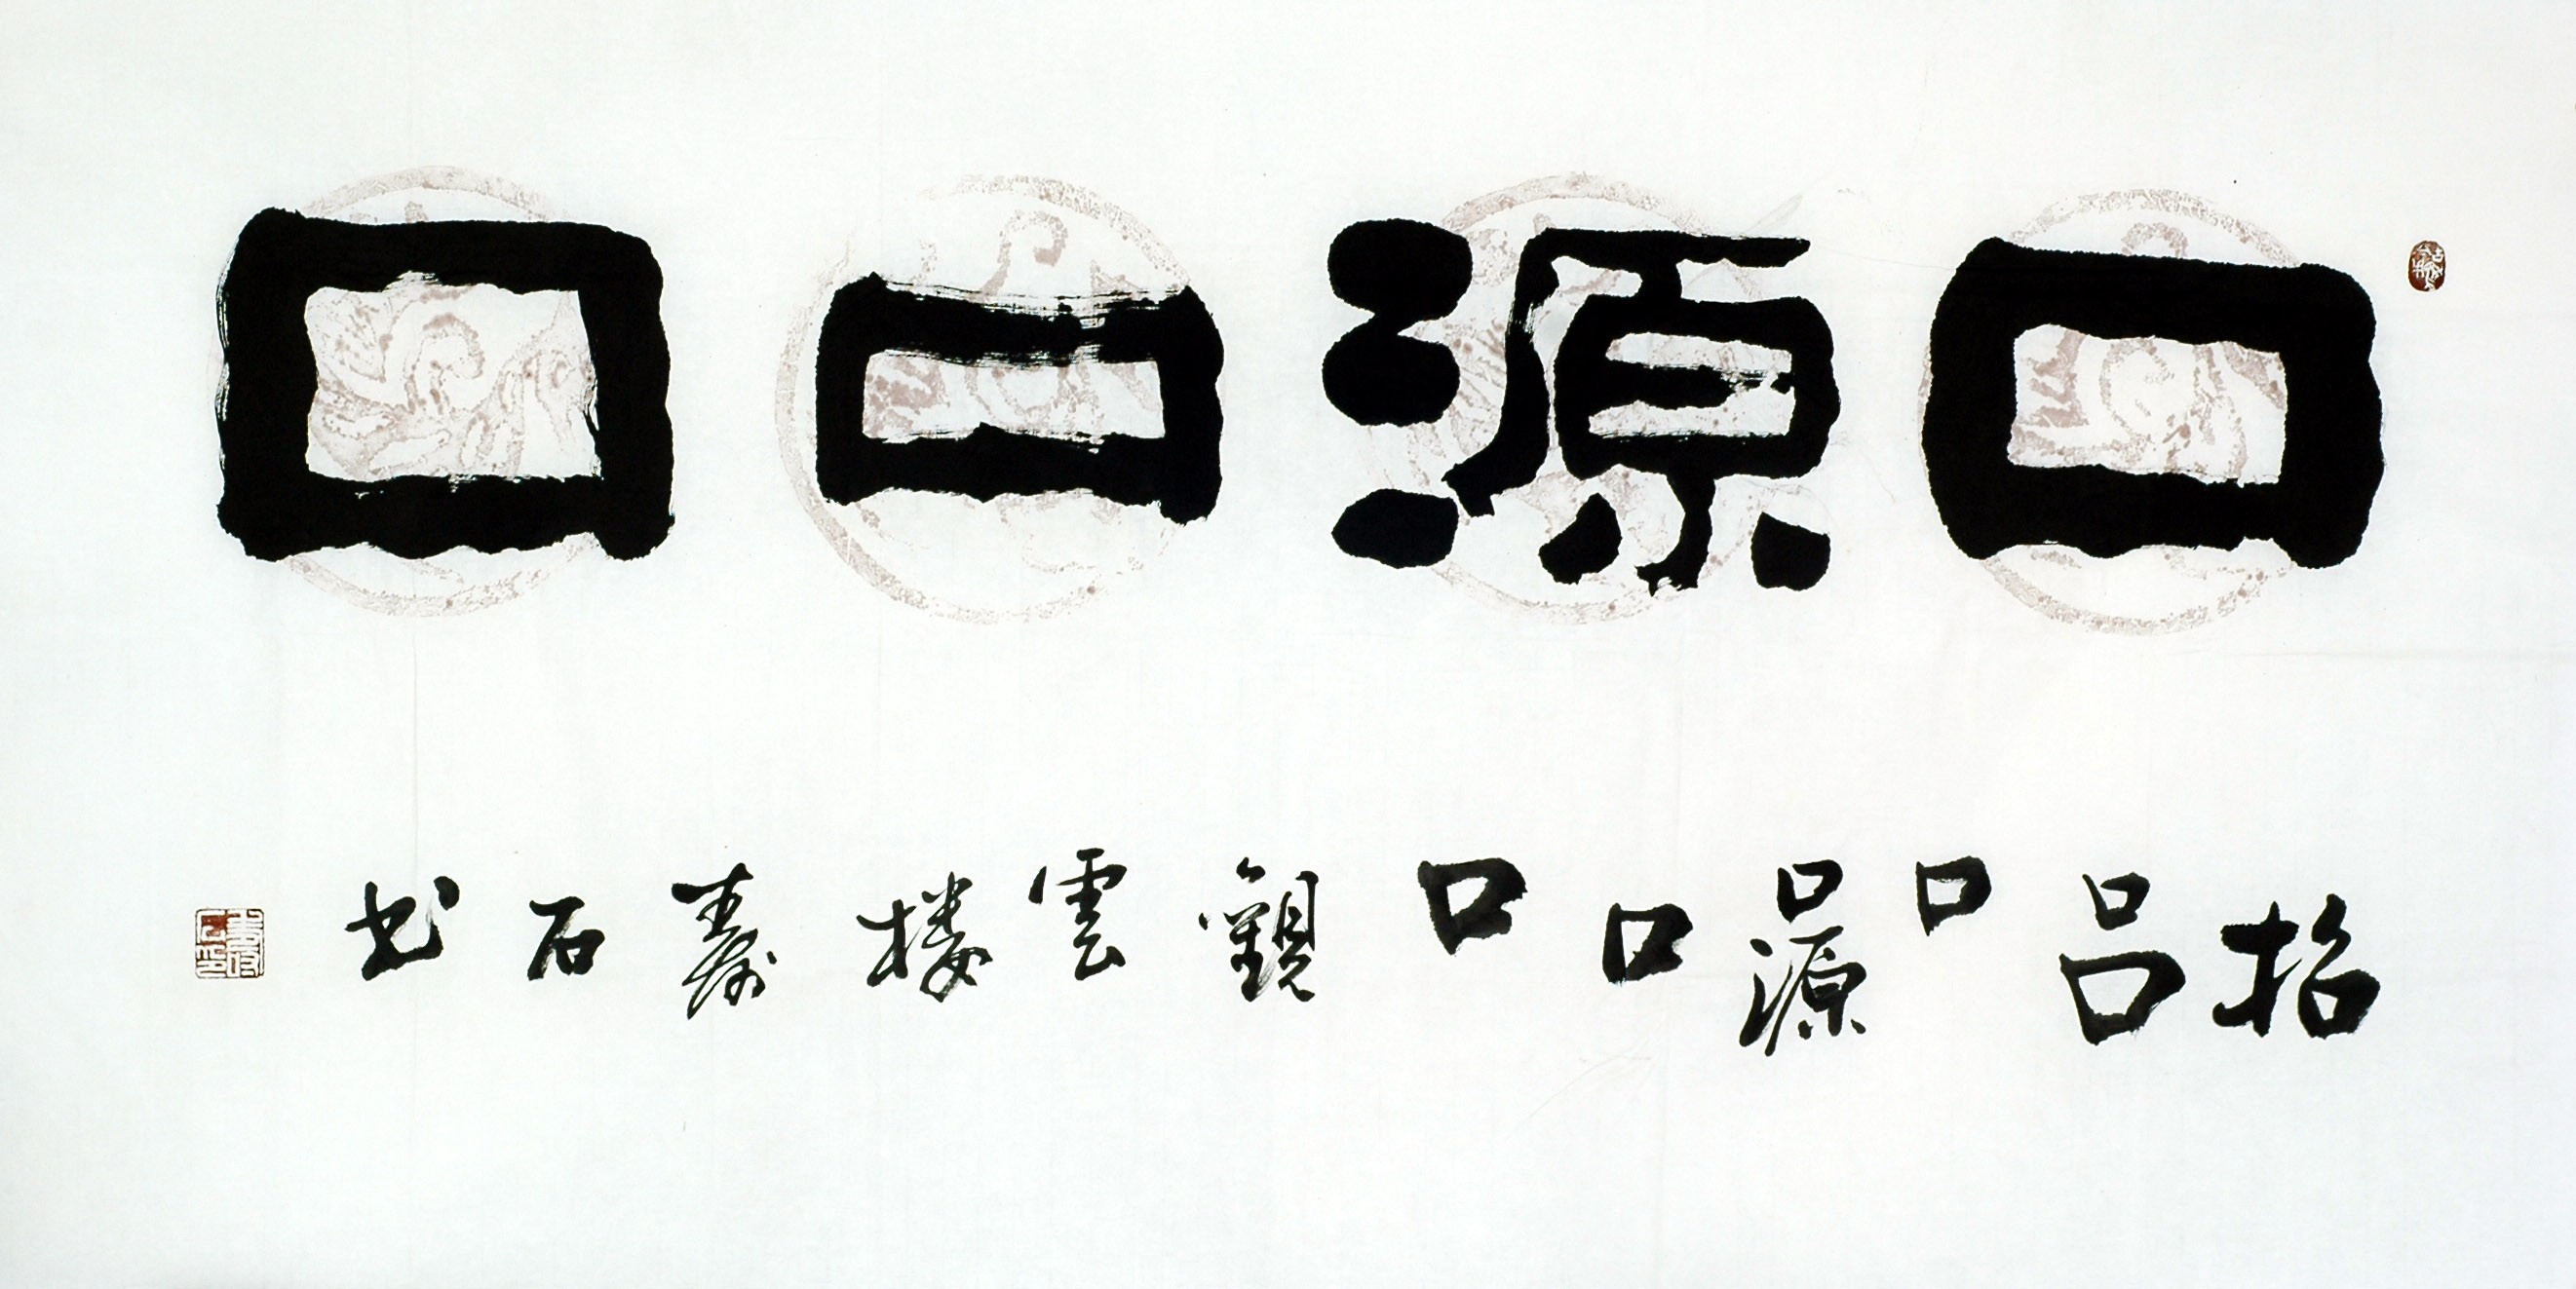 口源口口
招吕口口源口口觀雲楼壽石书